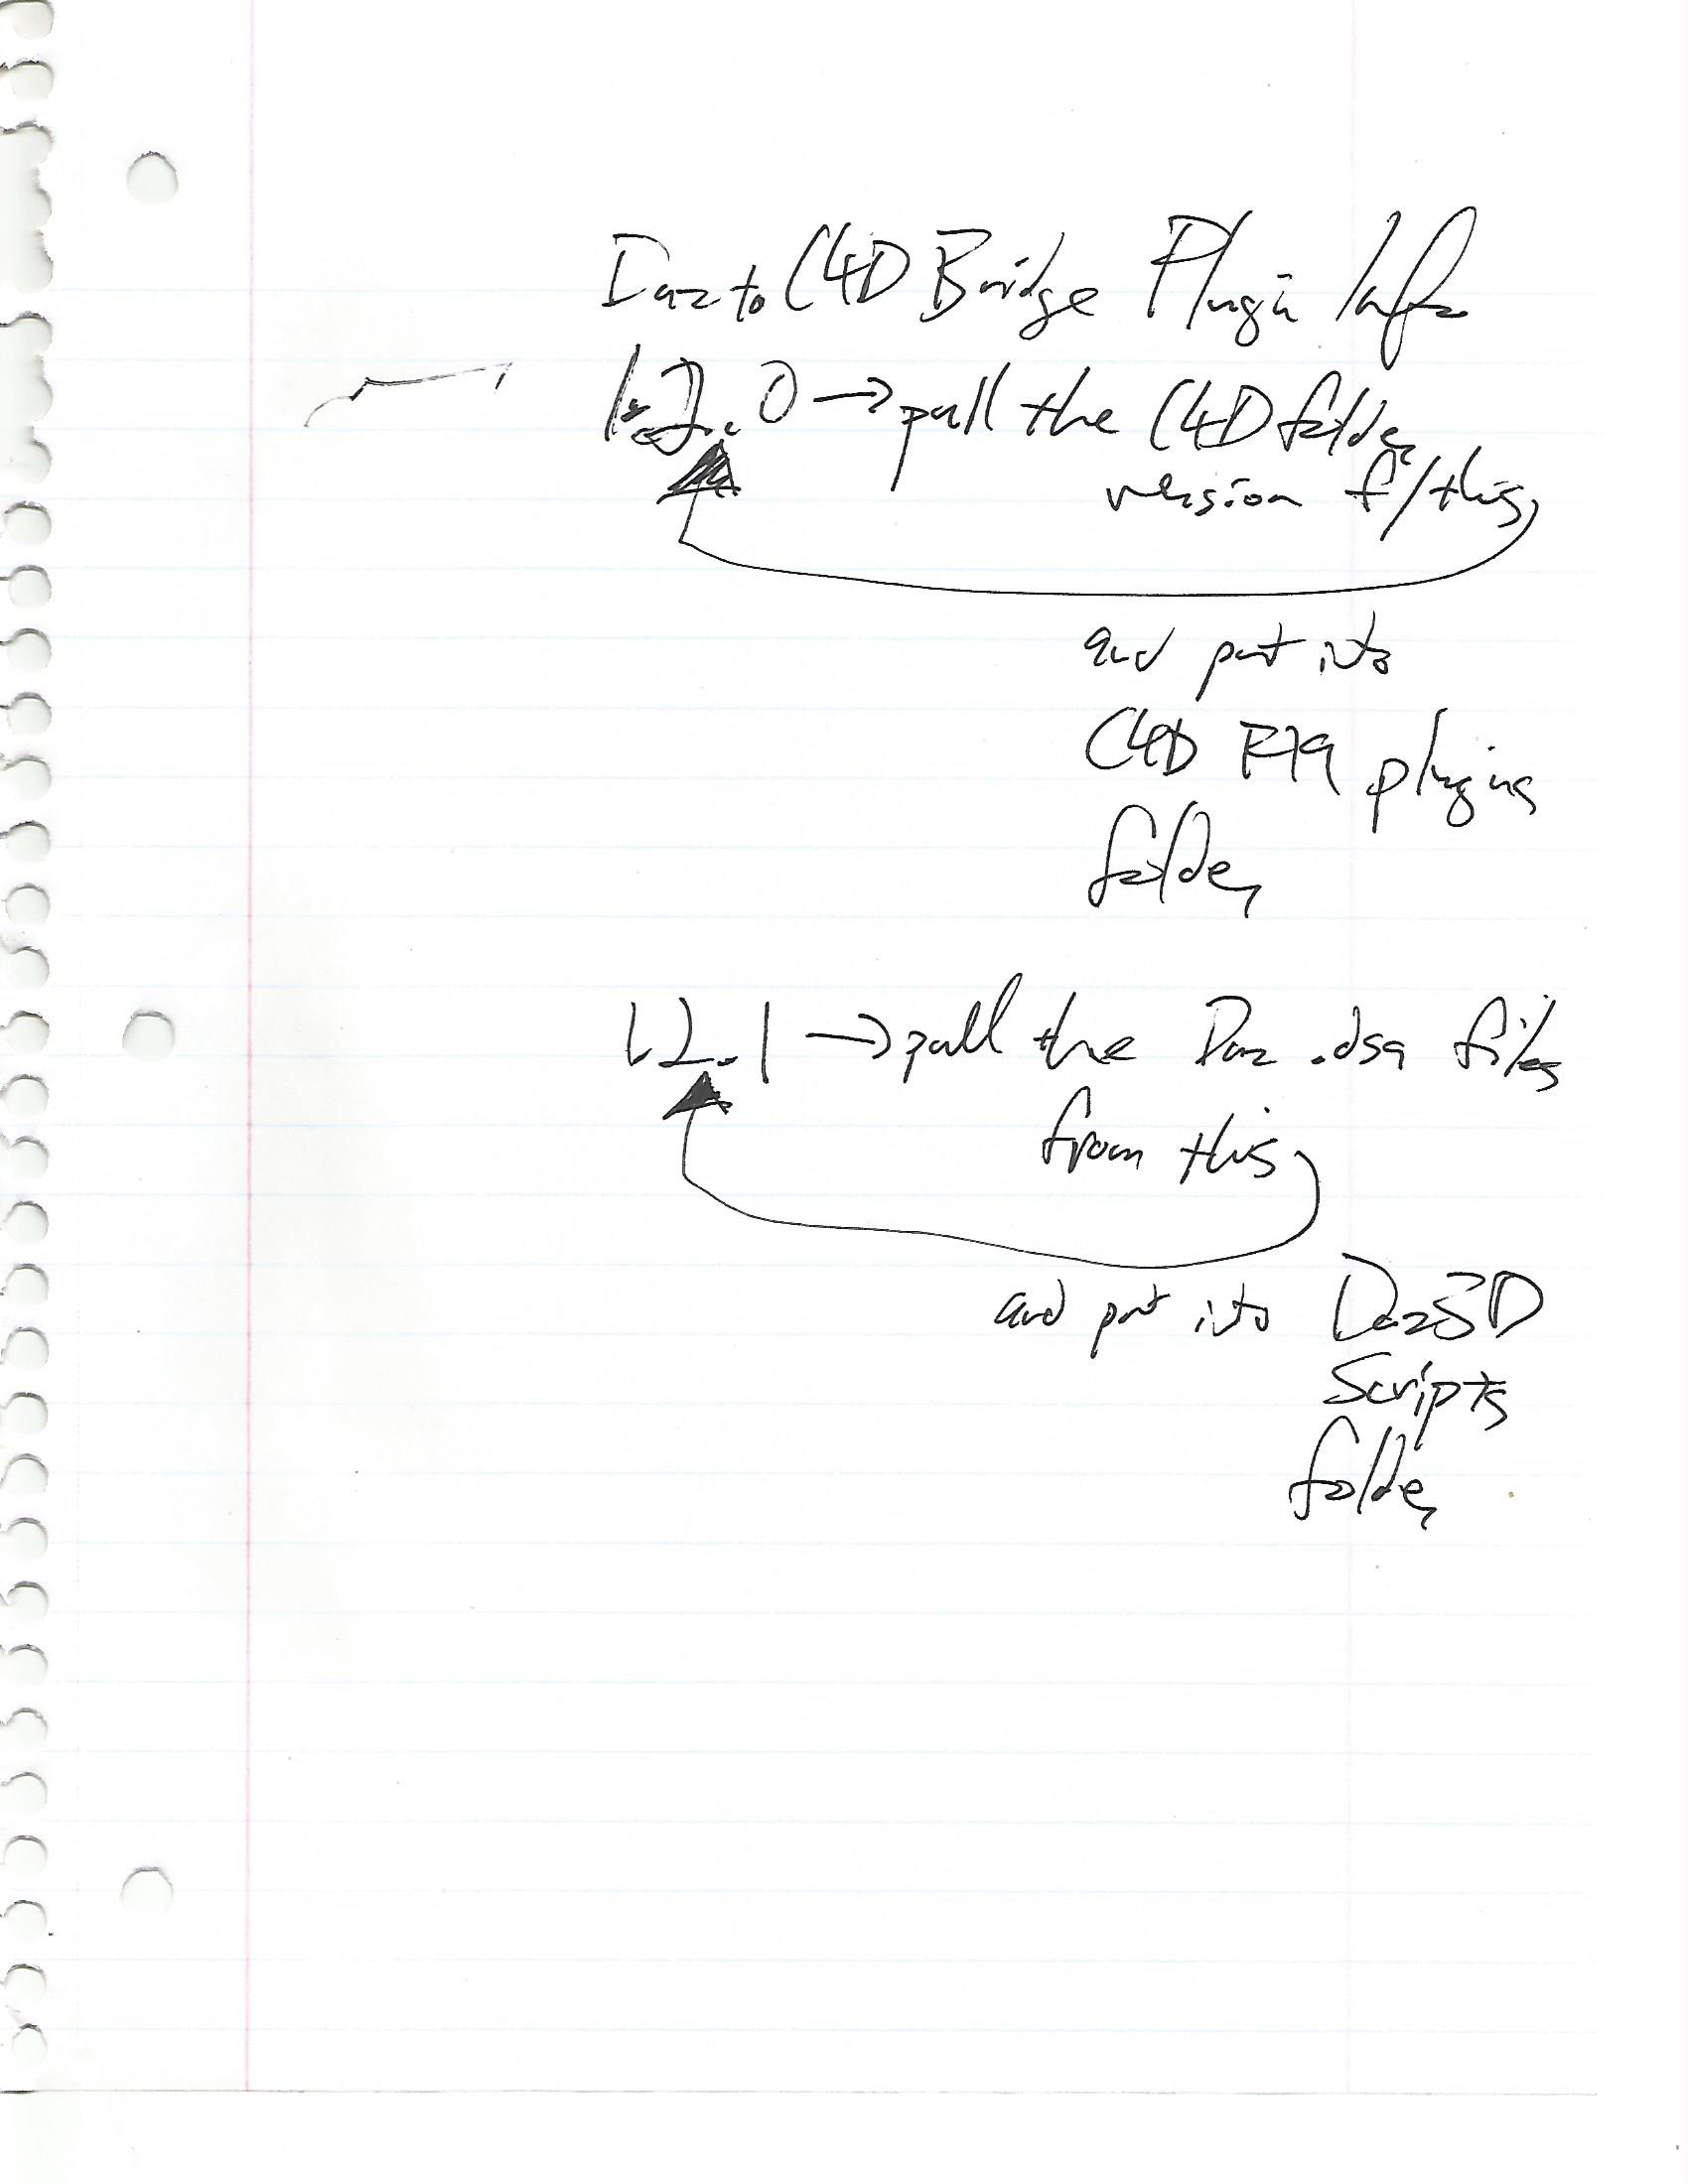 Daz to C4D Bridge Plugin Info
1.2.0 → pull the C4D folder
version f/this,
and put into
C4D R19 plugins
folder
1.2.1 → pull the Daz .dsa files
from this,
and put into Daz3D
Scripts
folder